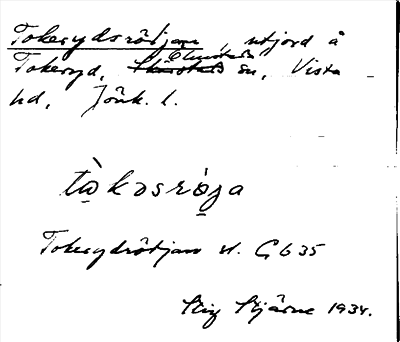 Tokerydsrödjan, utjord å
Tokeryd, Ölmstads sn, Vista
hd, Jönk. l.
tὼkəsrö̀ja
Tokerydsrödjan st. G 635
Stig Stjärne 1934.